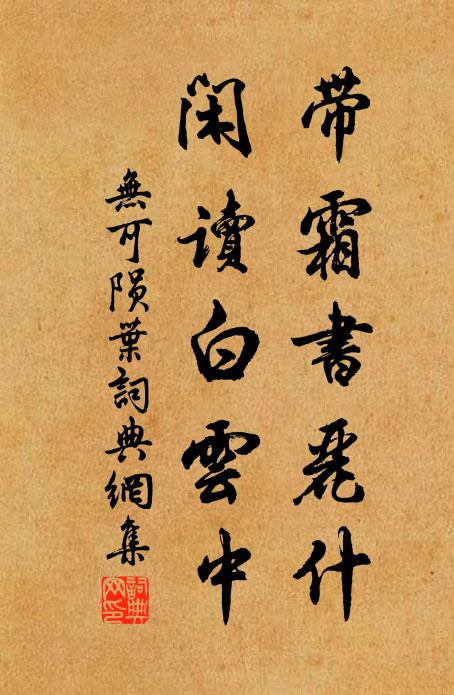 带霜書麗什
閑讀白雲中
無可陨葉詞典網集
詞典網印